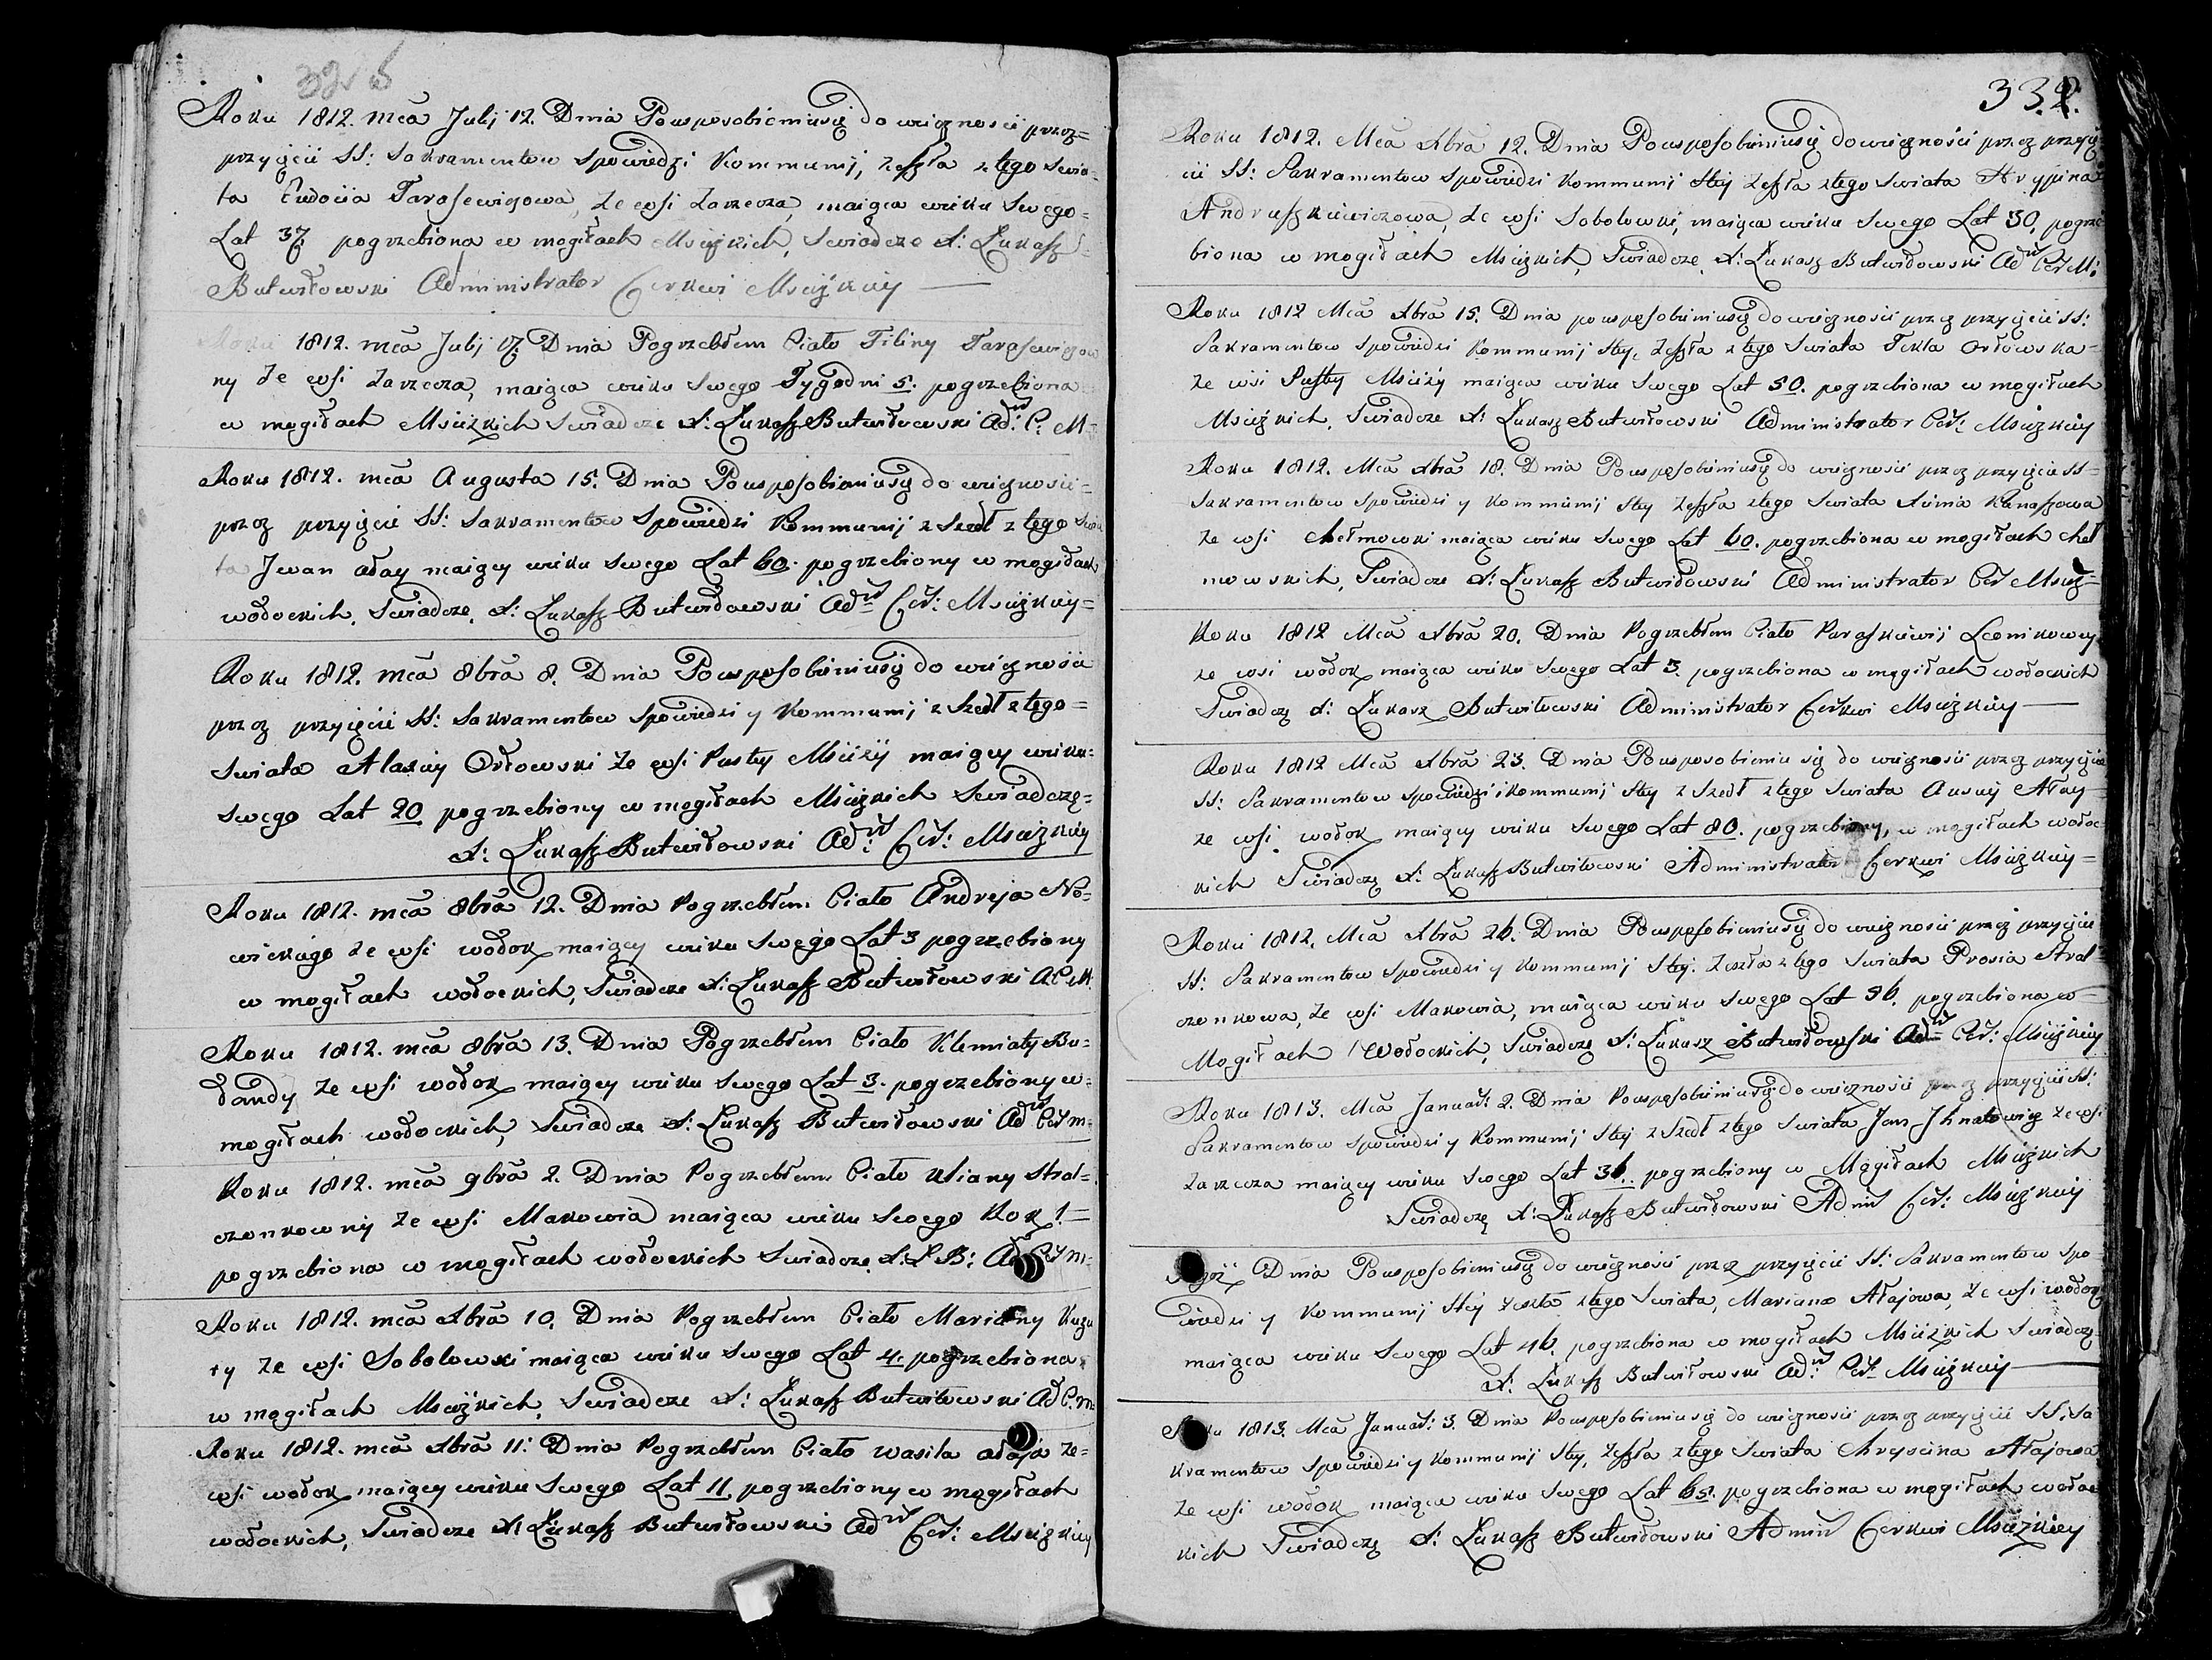 Roku 1812. mca Julij 12. Dnia Pousposobieniusię do wieczności przez=
przyięcie SS: Sakramentow Spowiedzi Kommunij, zeszła z tego Swia=
ta Eudocija Tarasewiczowa, ze wsi Zarzecza, maiąca wieku Swego=
Lat 37 pogrzebiona w mogiłach Msciżkich, Swiadcze X: Łukasz
Butwiłowski Administrator Cerkwi Msciżkiey
Roku 1812. mca Julij 17 Dnia Pogrzebłem Ciało Filiny Tarasewiczow
ny Ze wsi Zarzecza, maiąca wieku Swego Tygodni 5. pogrzebiona
w mogiłach Msciżkich Swiadcze X: Łukasz Butwiłowski Adr: C: M=
Roku 1812. mca Augusta 15. Dnia Pousposobieniusię do wieczności=
przez przyięcie SS: Sakramentow Spowiedzi Kommunij z Szedł z tego Swia
ta Jwan Ałay maiący wieku Swego Lat 60. pogrzebiony w mogiłach
wołockich, Swiadcze, X: Łukasz Butwiłowski Adr Cer: Msciżkiey=
Roku 1812. mca 8bra 8. Dnia Pousposobieniusię do wieczności
przez przyięcie SS: Sakramentow Spowiedzi y Kommunij z Szedł z tego=
Swiata Alaxiey Orłowski ze wsi Pustey Msciży maiący wieku=
swego Lat 20 pogrzebiony w mogiłach Msciżkich Swiadczę=
X: Łukasz Butwiłowski Adr: Cer: Msciżkiey
Roku 1812. mca 8bra 12. Dnia Pogrzebłem Ciało Andreja No=
wickiego ze wsi wołok maiący wieku Swego Lat 3 pogrzebiony
w mogiłach wołockich, Swiadcze X: Łukasz Butwiłowski A.C.M.
Roku 1812. mca 8bra 13. Dnia Pogrzebłem Ciało Klemiaty Bu=
łandy ze wsi wołok maiący wieku Swego Lat 3. pogrzebiony w=
mogiłach wołockich, Swiadcze X: Łukasz Butwiłowski Adr Cer m=
Roku 1812. mca 9bra 2. Dnia Pogrzebłem Ciało Uliany Stral=
czonkowny ze wsi Makowia maiąca wieku Swego Rok 1.=
pogrzebiona w mogiłach wołockich Swiadcze, X: Ł B: Adr Cer m=
Roku 1812. mca Xbra 10. Dnia Pogrzebłem Ciało Marianny Kuzu
ry ze wsi Sobolowki maiąca wieku Swego Lat 4. pogrzebiona
w mogiłach Msciżkich, Swiadcze X: Łukasz Butwiłowski Ad C: m:
Roku 1812. mca Xbra 11. Dnia Pogrzebłem Ciało wasila ałaja ze=
wsi wołok maiący wieku Swego Lat 11. pogrzebiony w mogiłach
wołockich, Swiadcze X: Łukasz Butwiłowski Adr Cer: Msciżkiey
332.
Roku 1812. Mca Xbra 12. Dnia Pousposobieniusię do wieczności przez przyię
cie SS: Sakramentow Spowiedzi Kommunij Stey zeszła z tego Swiata Hrypina
Andruszkiewiczowa, ze wsi Sobolowki, maiąca wieku Swego Lat 30, pogrze
biona w mogiłach Msciżkich, Swiadcze, X: Łukasz Butwiłowski Adr Cer M:
Roku 1812 Mca Xbra 15. Dnia pousposobieniusię do wieczności przez przyięcie SS:
Sakramentow Spowiedzi Kommunij Stey, zeszła z tego Swiata Tekla Orłowska=
ze wsi Pustey Msciży maiąca wieku Swego Lat 50. pogrzebiona w mogiłach
Msciżkich, Swiadcze X: Łukasz Butwiłowski Administrator Cer: Msciżkiey
Roku 1812. Mca Xbra 18. Dnia Pousposobieniusię do wieczności przez przyięcie SS=
Sakramentow Spowiedzi y Kommunij Stey zeszła z tego Swiata Xienia Kanaszowa
ze wsi Chełmowki maiąca wieku Swego Lat 60. pogrzebiona w mogiłach Cheł
mowskich, Swiadcze X: Łukasz Butwiłowski Administrator Cer Msciż=
Roku 1812 Mca Xbra 20. Dnia Pogrzebłem Ciało Paraskiewij Leonikowey
ze wsi wołok maiąca wieku Swego Lat 3. pogrzebiona w mogiłach wołockich
Swiadczę X: Łukasz Butwiłowski Administrator Cerkwi Msciżkiey
Roku 1812 Mca Xbra 23. Dnia Pousposobieniu się do wieczności przez przyięcie
SS: Sakramentow Spowiedzi i Kommunij Stey z Szedł z tego Swiata Auxiey Ałay
ze wsi wołok maiący wieku Swego Lat 80. pogrzebiony, w mogiłach wołoc
kich Swiadczę X: Łukasz Butwiłowski Administrator Cerkwi Msciżkiey=
Roku 1812. Mca Xbra 26. Dnia Pousposobieniusię do wieczności przez przyięcie
SS: Sakramentow Spowiedzi y Kommunij Stey. zeszła z tego Swiata Prosia Stral=
czonkowa, ze wsi Makowia, maiąca wieku Swego Lat 36. pogrzebiona w=
Mogiłach Wołockich, Swiadczę X: Łukasz Butwiłowski Adr Cer: Msciżkiey
Roku 1813. Mca Januar: 2. Dnia Pousposobieniusię do wieczności przez przyięcie SS:
Sakramentow Spowiedzi y Kommunij Stey z Szedł z tego Swiata Jan Jhnatowicz ze wsi
Zarzecza maiący wieku Swego Lat 36. pogrzebiony w Mogiłach Msciżkich
Swiadczę X: Łukasz Butwiłowski Admin Cer: Msciżkiey
Dnia Pousposobieniusię do wieczności przez przyięcie SS: Sakramentow Spo
wiedzi y Kommunij Stey zeszła z tego Swiata, Marianna Ałajowa, ze wsi wołok
maiąca wieku Swego Lat 46. pogrzebiona w mogiłach Msciżkich Swiadczę
X: Łukasz Butwiłowski Adr: Cer: Msciżkiey
Roku 1813. Mca Januar: 3. Dnia Pousposobieniusię do wieczności przez przyięcie SS: Sa
kramentow Spowiedzi y Kommunij Stey, zeszła z tego Swiata Chryscina Ałajowa
ze wsi wołok maiąca wieku Swego Lat 65. pogrzebiona w mogiłach wołoc
kich Swiadczę X: Łukasz Butwiłowski Admin Cerkwi Msciżkiey